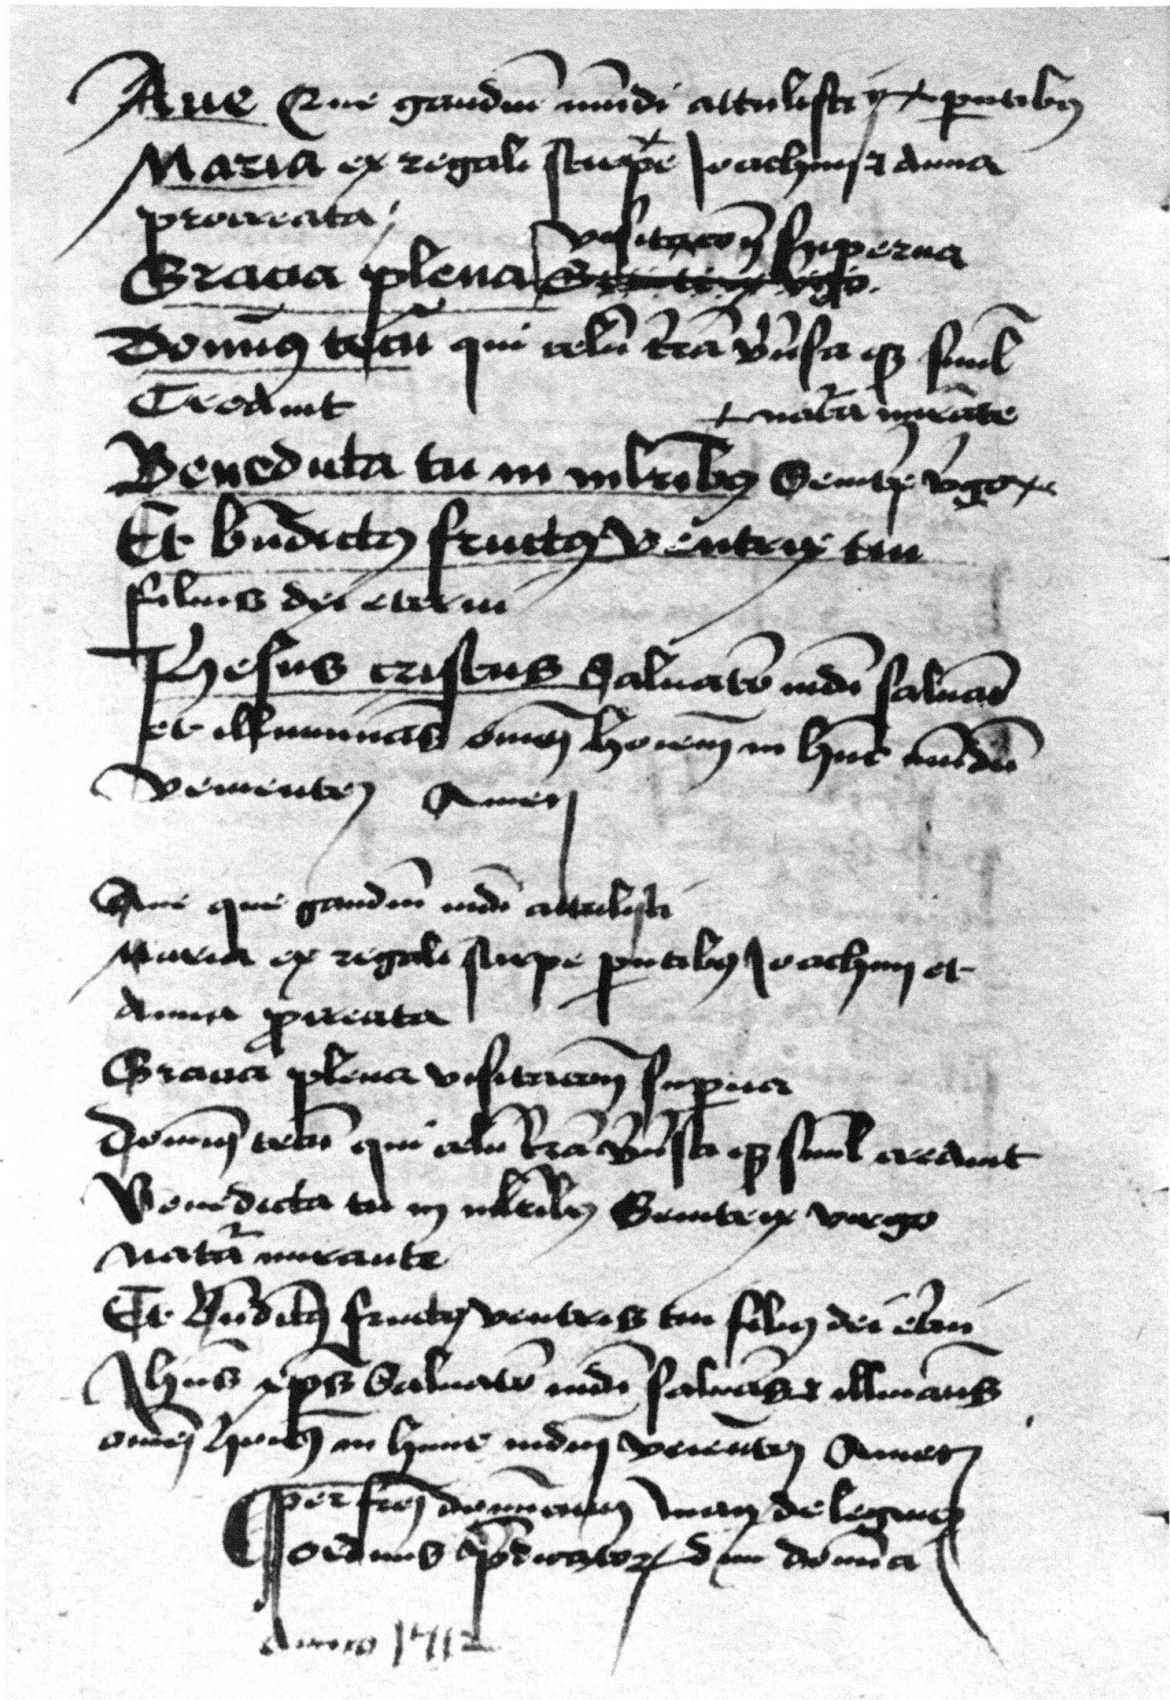 Aue Que gaudiū mūdi attulisti + pntibꝰ
Maria ex regali stirpe Joachim ⁊ anna
procreata
visitacōe superna
Gracia plena
Domīꝰ tecū qui celū t̄rā vn̄īsa simł
Creauit + natā mirāte
Benedicta tu in mlr̄ibꝰ Genitx̄ v̄go +
Et bn̄dictꝰ fructꝰ Ventris tui
filius dei eterni
Jhesus cristus Saluatō mdī saluās
et illuminās om̄em hōiem in hūc mūdū
Venientē Amen
Aue que gaudiū mdī attulisti
Maria ex regali stirpe pntibꝰ Joachim et
anna pcreata
Gracia plena visitacōe supna
Domīꝰ tecū qui celū t̄rā vn̄īsa simł creauit
Benedicta tu in mlr̄ibꝰ Genitrix virgo
Natā mirante
Et bn̄dictꝰ fructꝰ ventris tui filiꝰ dei etn̄i
Jhus xp̄s Saluatō mdī saluās ⁊ illīans
om̄em hoīem in hunc mdū venientē Amen
per frēm de
ordinis p̄dicatoꝝ
Anno